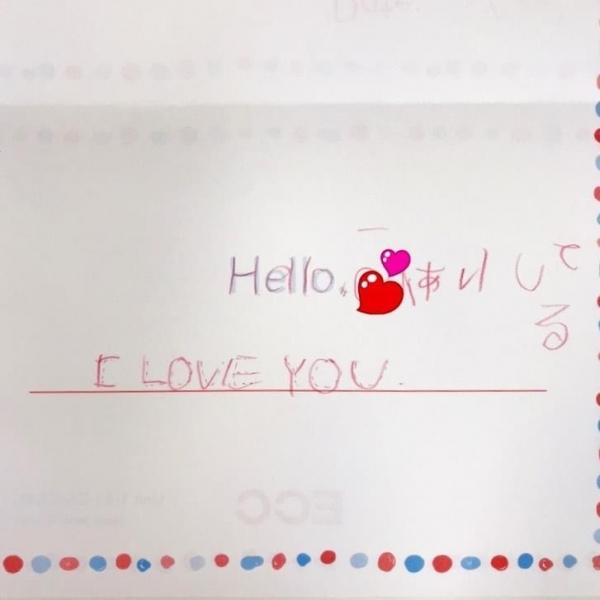 Hello. あいしてる
I LOVE YOU.